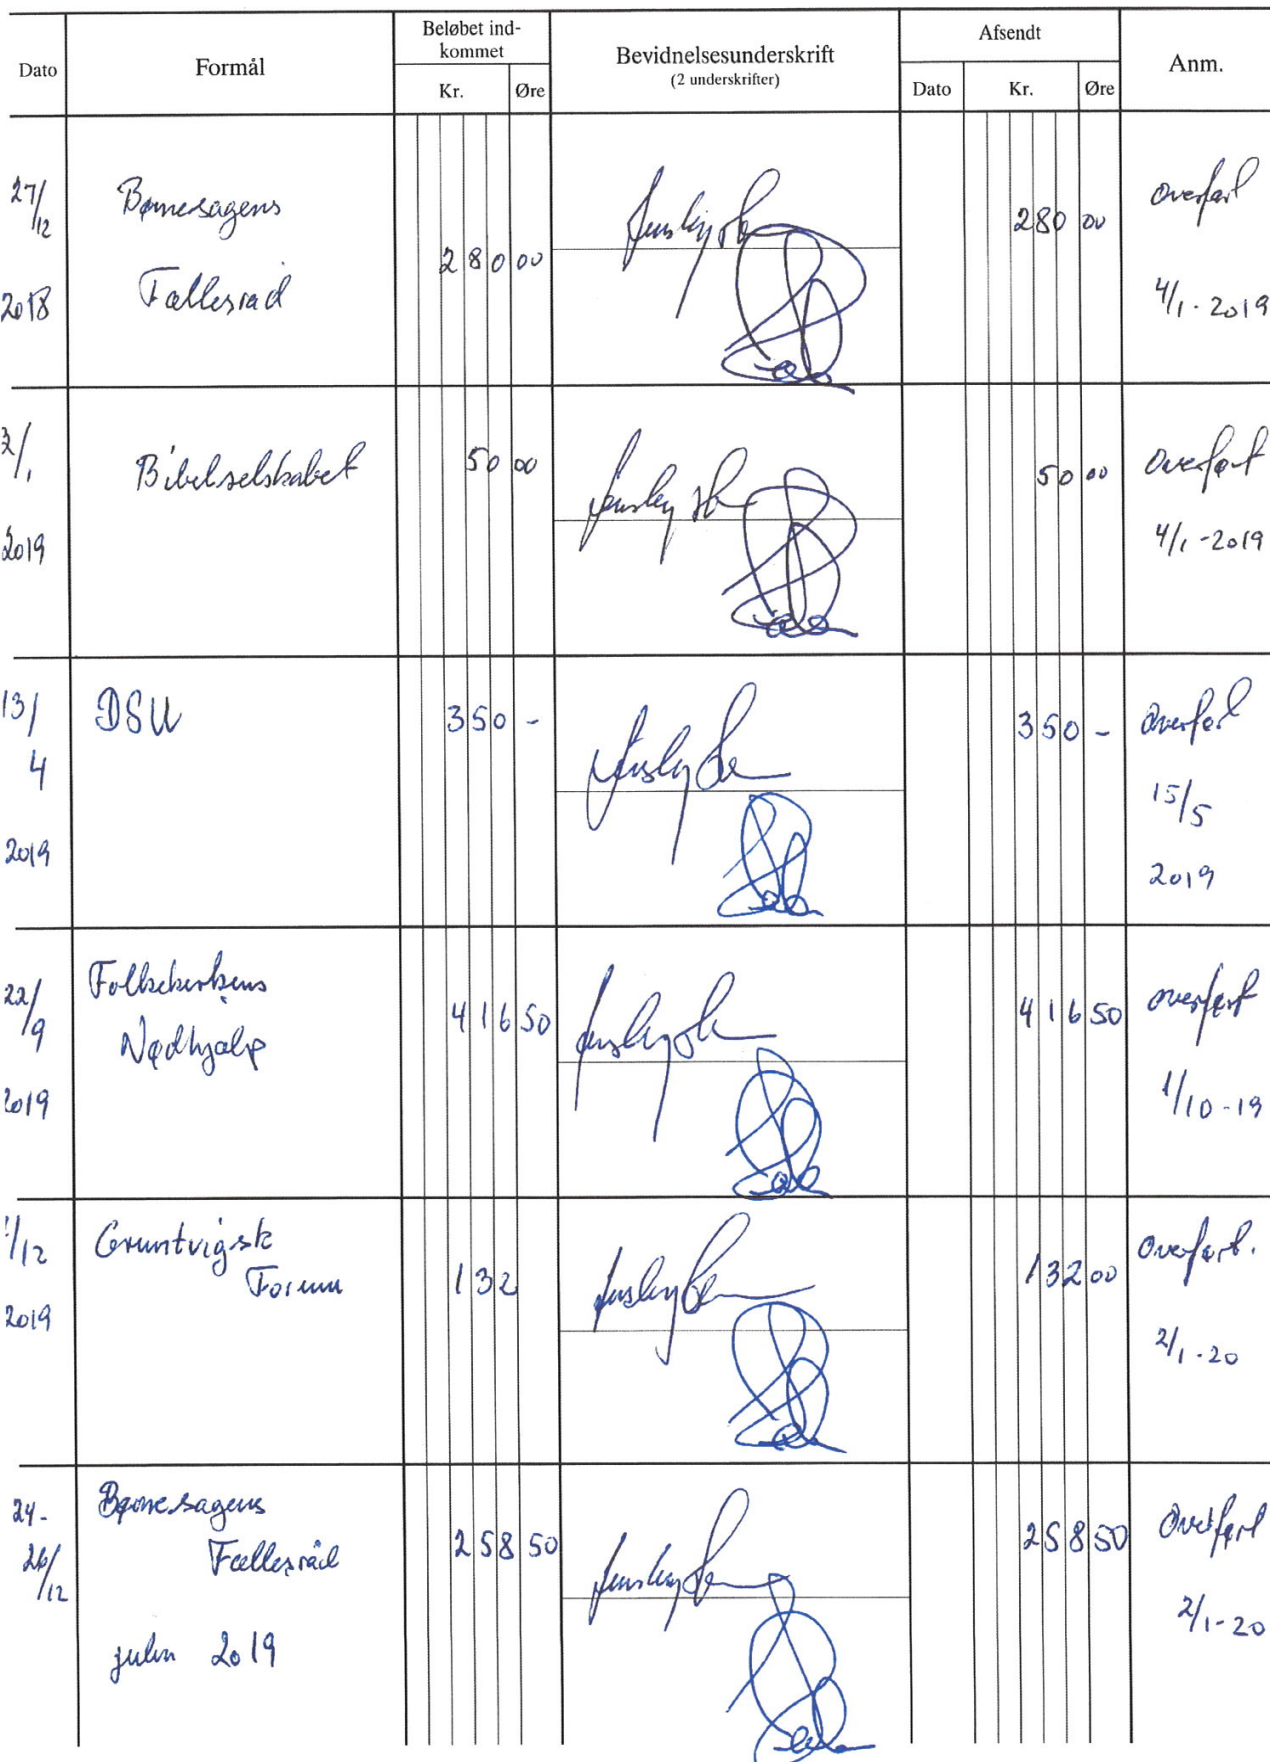 Dato
Formål
Beløbet ind-
kommet
Kr. Øre
Bevidnelsesunderskrift
(2 underskrifter)
Afsendt
Dato Kr. Øre
Anm.
27/12 2018
Børnesagens
Fællesråd
280 00
280 00
overført
4/1-2019
2/1 2019
Bibelselskabet
50 00
50 00
Overført
4/1-2019
13/4 2019
DSU
350 -
350 -
Overført
15/5
2019
22/9 2019
Folkekirkens
Nødhjælp
416 50
416 50
overført
1/10-19
1/12 2019
Gruntvigsk
Forum
132
132 00
Overført.
2/1-20
24-
26/12
Børnesagens
Fællesråd
julen 2019
258 50
258 50
Overført
2/1-20